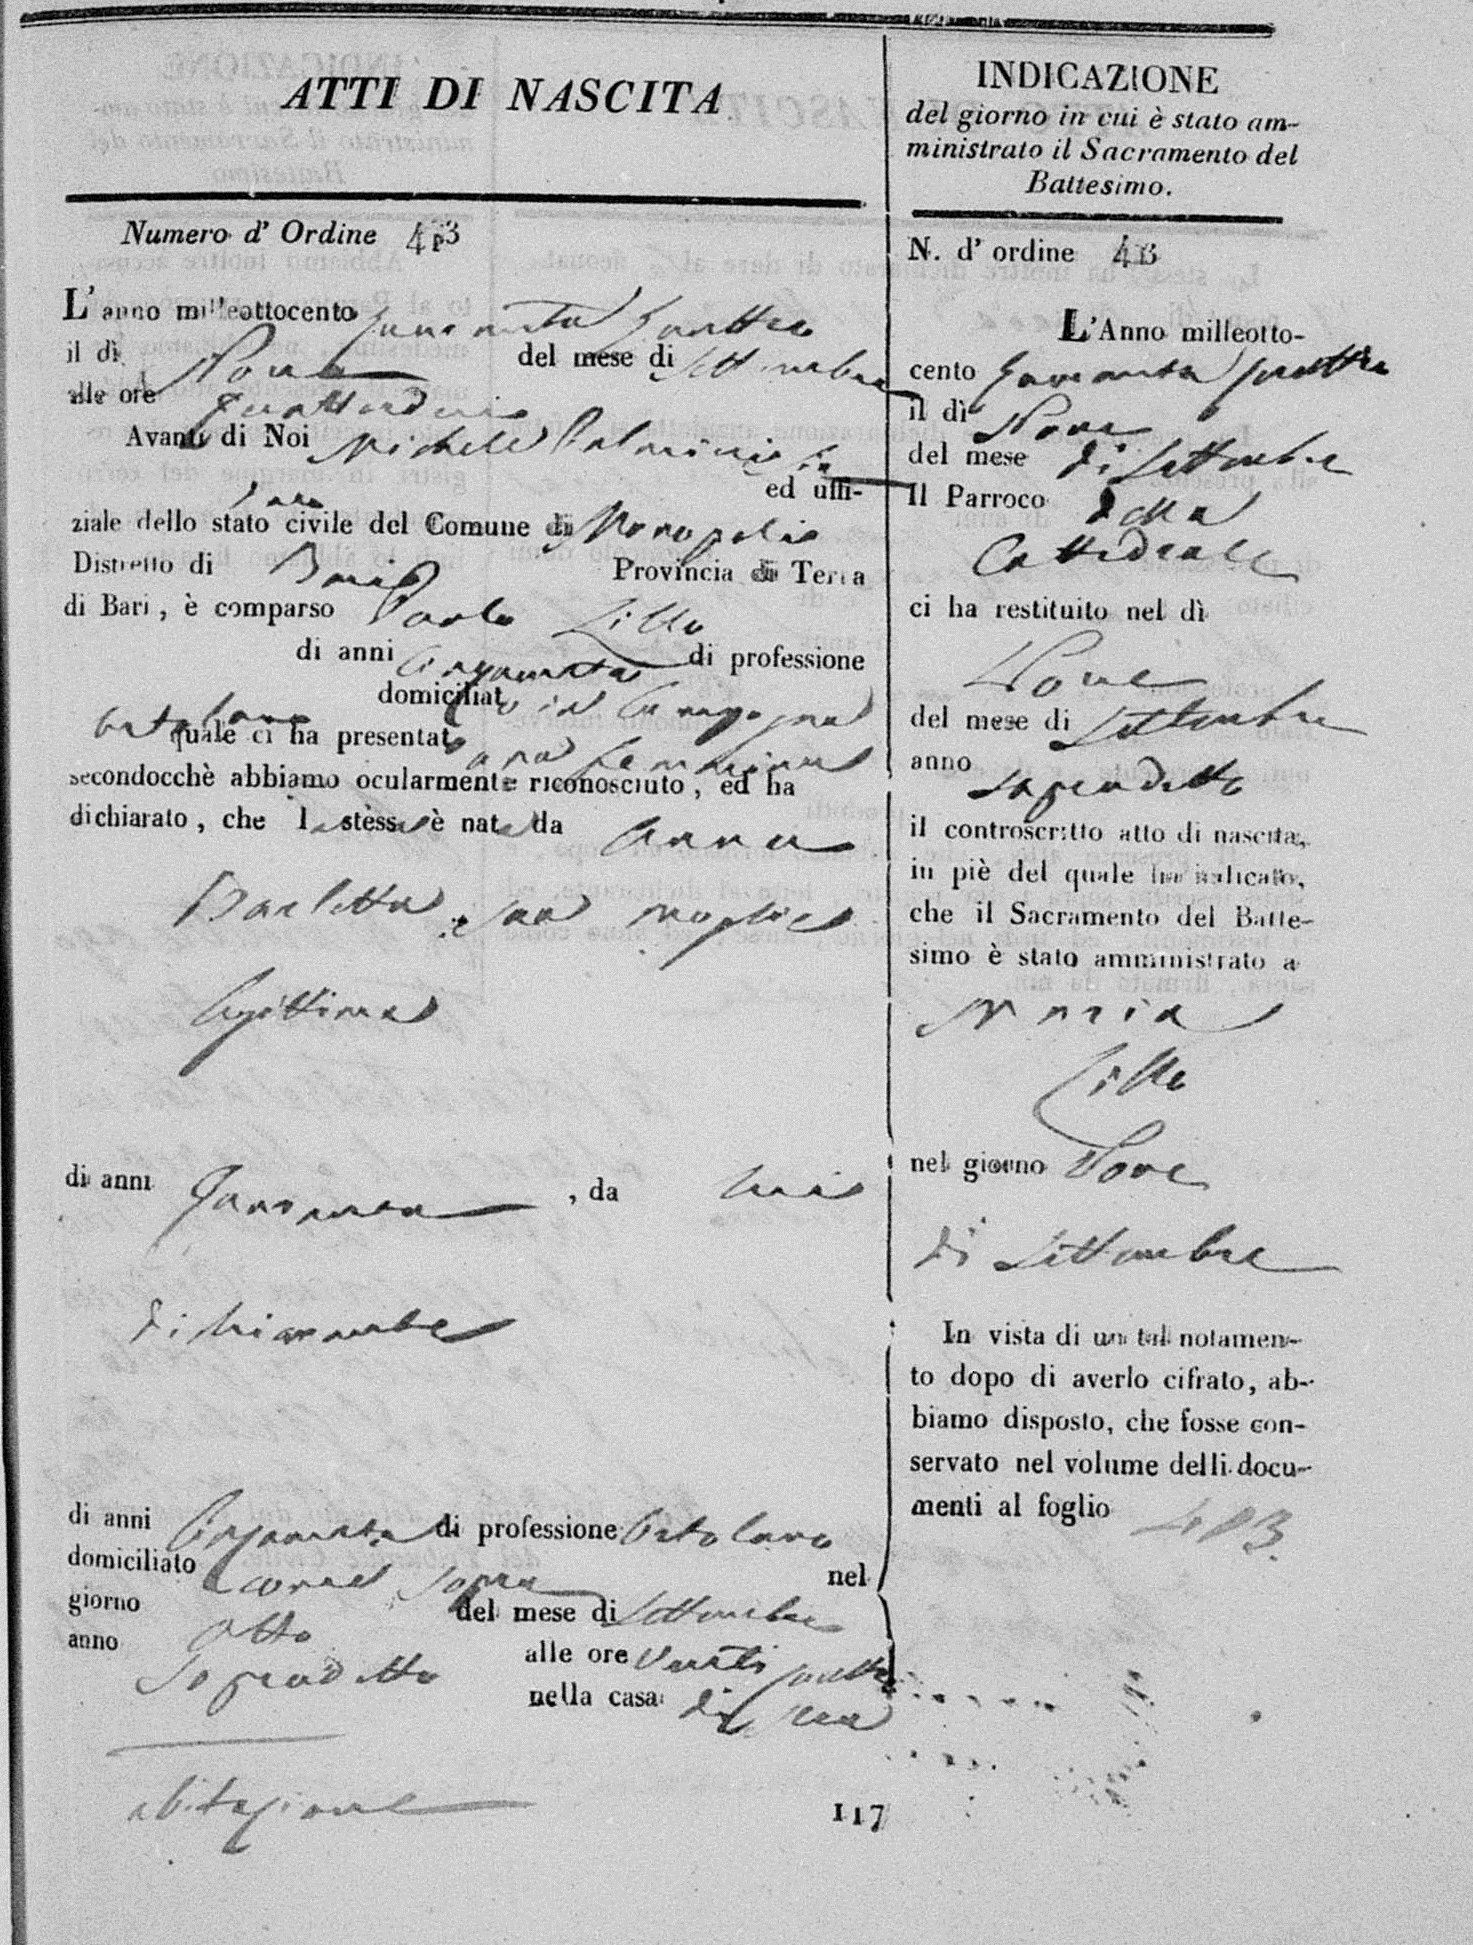 ATTI DI NASCITA
Numero d' Ordine 4
L'anno milleottocento quaranta quattro
il dì Nove del mese di Settembre
alle ore quattordici
Avanti di Noi Michele Palmieri
ed uffi-
ziale dello stato civile del Comune di Monopoli
Distretto di Bari Provincia di Terra
di Bari, è comparso Paolo Lillo
di anni Cinquanta di professione
ortolano domiciliato in Campagna
quale ci ha presentato una femmina
secondocchè abbiamo ocularmente riconosciuto, ed ha
dichiarato, che la stessa è nata da Anna
Barletta sua moglie
legittima
di anni Quaranta, da lui
dichiarante
di anni Cinquanta di professione Ortolano
domiciliato come sopra nel
giorno otto del mese di Settembre
anno Sopradetto alle ore venti quattro
nella casa di sua
abitazione
117
INDICAZIONE
del giorno in cui è stato am-
ministrato il Sacramento del
Battesimo.
N. d' ordine 4
L'Anno milleotto-
cento quaranta quattro
il dì Nove
del mese di Settembre
Il Parroco della
Cattedrale
ci ha restituito nel dì
Nove
del mese di Settembre
anno Sopradetto
il controscritto atto di nascita,
in piè del quale ha indicato,
che il Sacramento del Batte-
simo è stato amministrato a
Maria
Lillo
nel giorno Nove
di Settembre
In vista di un tal notamen-
to dopo di averlo cifrato, ab-
biamo disposto, che fosse con-
servato nel volume delli docu-
menti al foglio